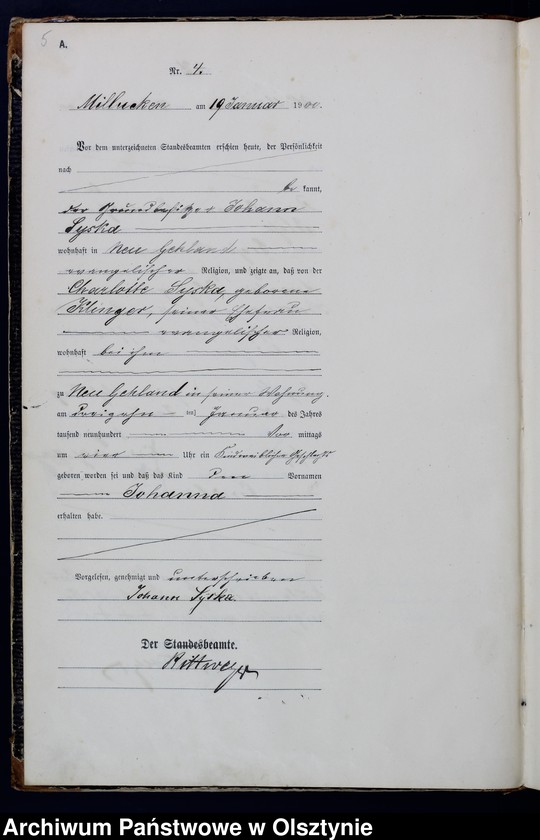 5
A.
Nr. 4.
Millucken am 19 Januar 1900.
Vor dem unterzeichneten Standesbeamten erschien heute, der Persönlichkeit
nach
be kannt,
der Grundbesitzer Johann
Syska
wohnhaft in Neu Gehland
evangelischer Religion, und zeigte an, daß von der
Charlotte Syska, geborene
Klinger, seiner Ehefrau
evangelischer Religion,
wohnhaft bei ihm
zu Neu Gehland in seiner Wohnung,
am dreizehn ten Januar des Jahres
tausend neunhundert Vor mittags
um vier Uhr ein Kind weiblichen Geschlechts
geboren worden sei und daß das Kind den Vornamen
Johanna
erhalten habe.
Vorgelesen, genehmigt und unterschrieben
Johann Syska.
Der Standesbeamte.
Rittweger
Archiwum Państwowe w Olsztynie